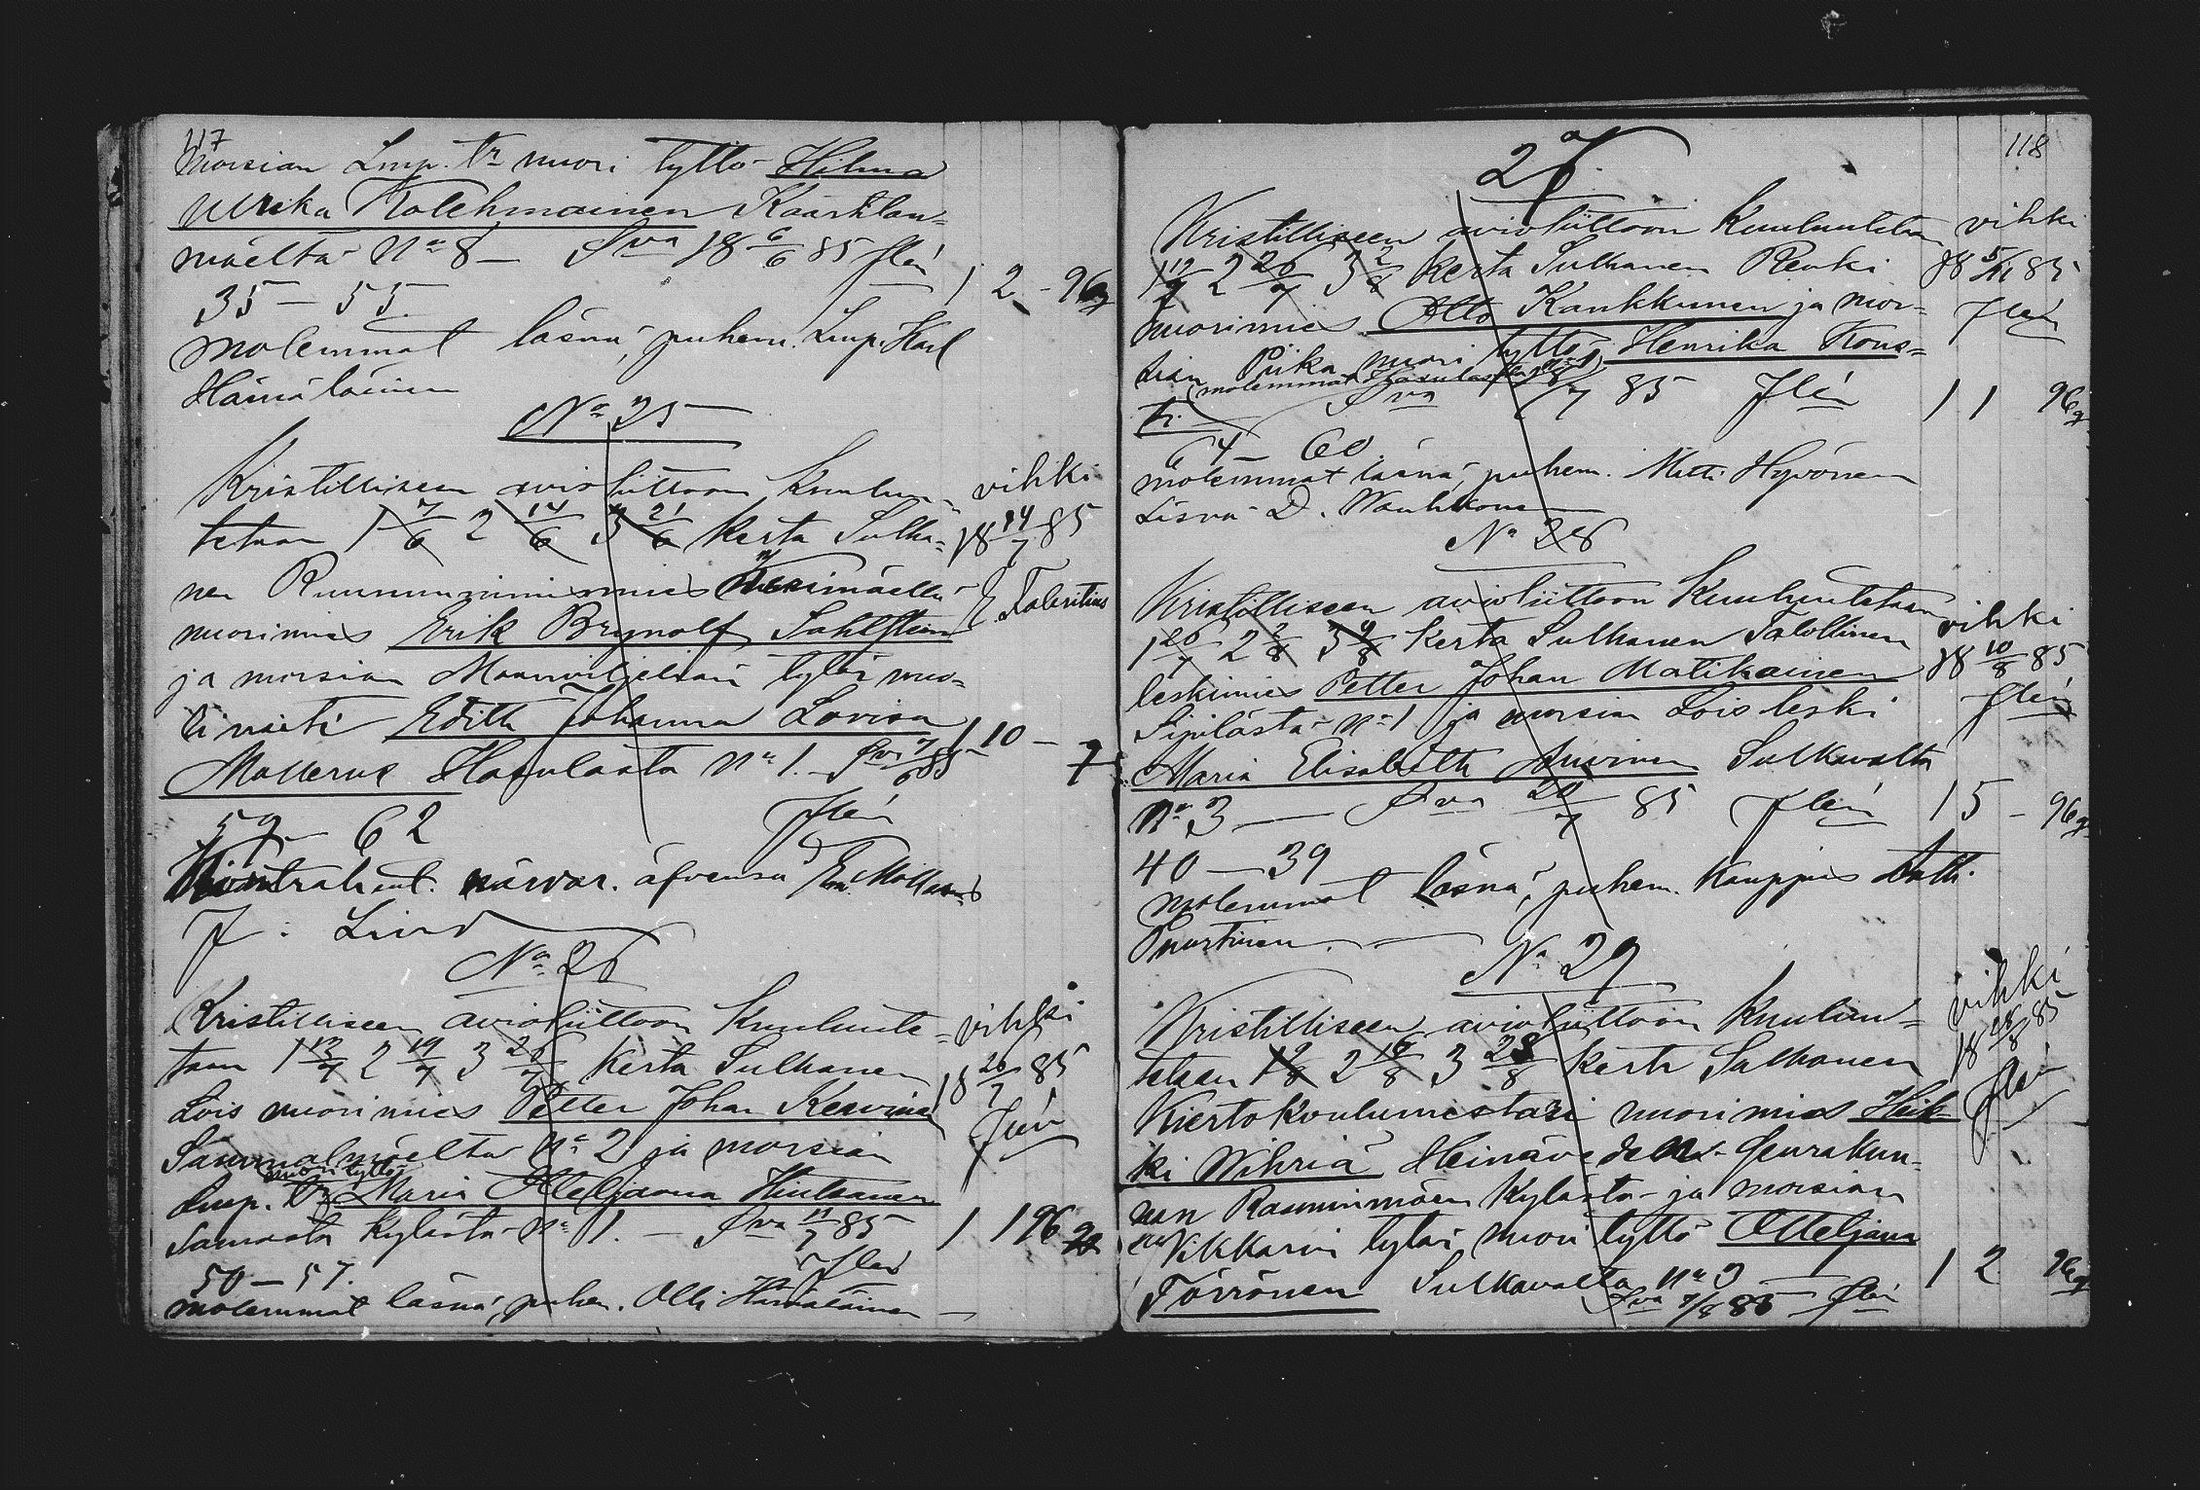 117
morsian Lmp. tr nuori tyttö Hilma
Ulrika Kolehmainen Kaarilan-
mäeltä No 8 — Sva 18 6/6 85 Flén
35 — 55. 1 2 - 96
molemmat läsnä, puhem. Lmp. Karl
Hämäläinen
No 25
Kristilliseen avioliittoon kuulu-
tetaan 1 7/6 2 14/6 3 21/6 kerta Sulha-
nen Ruununnimismies
nuorimies Erik Brynolf Sahlstein
ja morsian Maanviljeliän tytär neu-
ti Edith Johanna Lovisa
Mollerus Hasulasta No 1. Sva 85
vihki
18 14/7 85
1 10 — 7
59 — 62 Flén
Kontrahent. närvar. äfvenså Em. Mollerus
J. Lind
No 26
Kristilliseen avioliittoon kuulute-
taan 1 12/7 2 19/7 3 26/7 kerta Sulhanen
Lois nuorimies Petter Johan Kervinen
No 2 ja morsian
nuori tyttö
Lmp. tr Maria Otteljaana Hintkanen
Samasta kylästä No 1. — Sva 11/7 85
Flén
vihki
18 26/7 85
Flén
1 1 96
50 — 57.
molemmat läsnä, puhem. Olli Hämäläinen —
118
27
Kristilliseen avioliittoon kuulutetaan
1 19/7 2 26/7 3 2/8 kerta Sulhanen Renki
nuorimies Otto Kankkunen ja mor-
sian Piika nuori tyttö Henrika Kons-
tr.
Sva 18/7 85 Flén
vihki
18 5/11 85
Flén
1 1 96
64 — 60
molemmat läsnä, puhem. Matti Hyvönen
Lisvä D. Wauhkonen
No 28
Kristilliseen avioliittoon kuulutetaan
1 26/7 2 2/8 3 9/8 kerta Sulhanen Talollinen
leskimies Petter Johan Matikainen
Sipilästä No 1 ja morsian Lois leski
Maria Elisabeth Auvinen Sulkavalta
No 3 — Sva 20/7 85 Flén
vihki
18 10/8 85
Flén
1 5 - 96
40 — 39
molemmat läsnä, puhem. Kauppias Antti
Puurtinen.
No 29
Kristilliseen avioliittoon kuulu-
tetaan 1 9/8 2 16/8 3 23/8 kerta Sulhanen
Kiertokoulumestari nuorimies Heik-
ki Wihriä Heinäveden Seurakun-
nan Rasuinmäen kylästä ja morsian
Nikkarin tytär nuori tyttö Otteljana
Törrönen Sulkavalta No 3
Sva 7/8 85 Flén
vihki
18 28/8 85
Flén
1 2 96